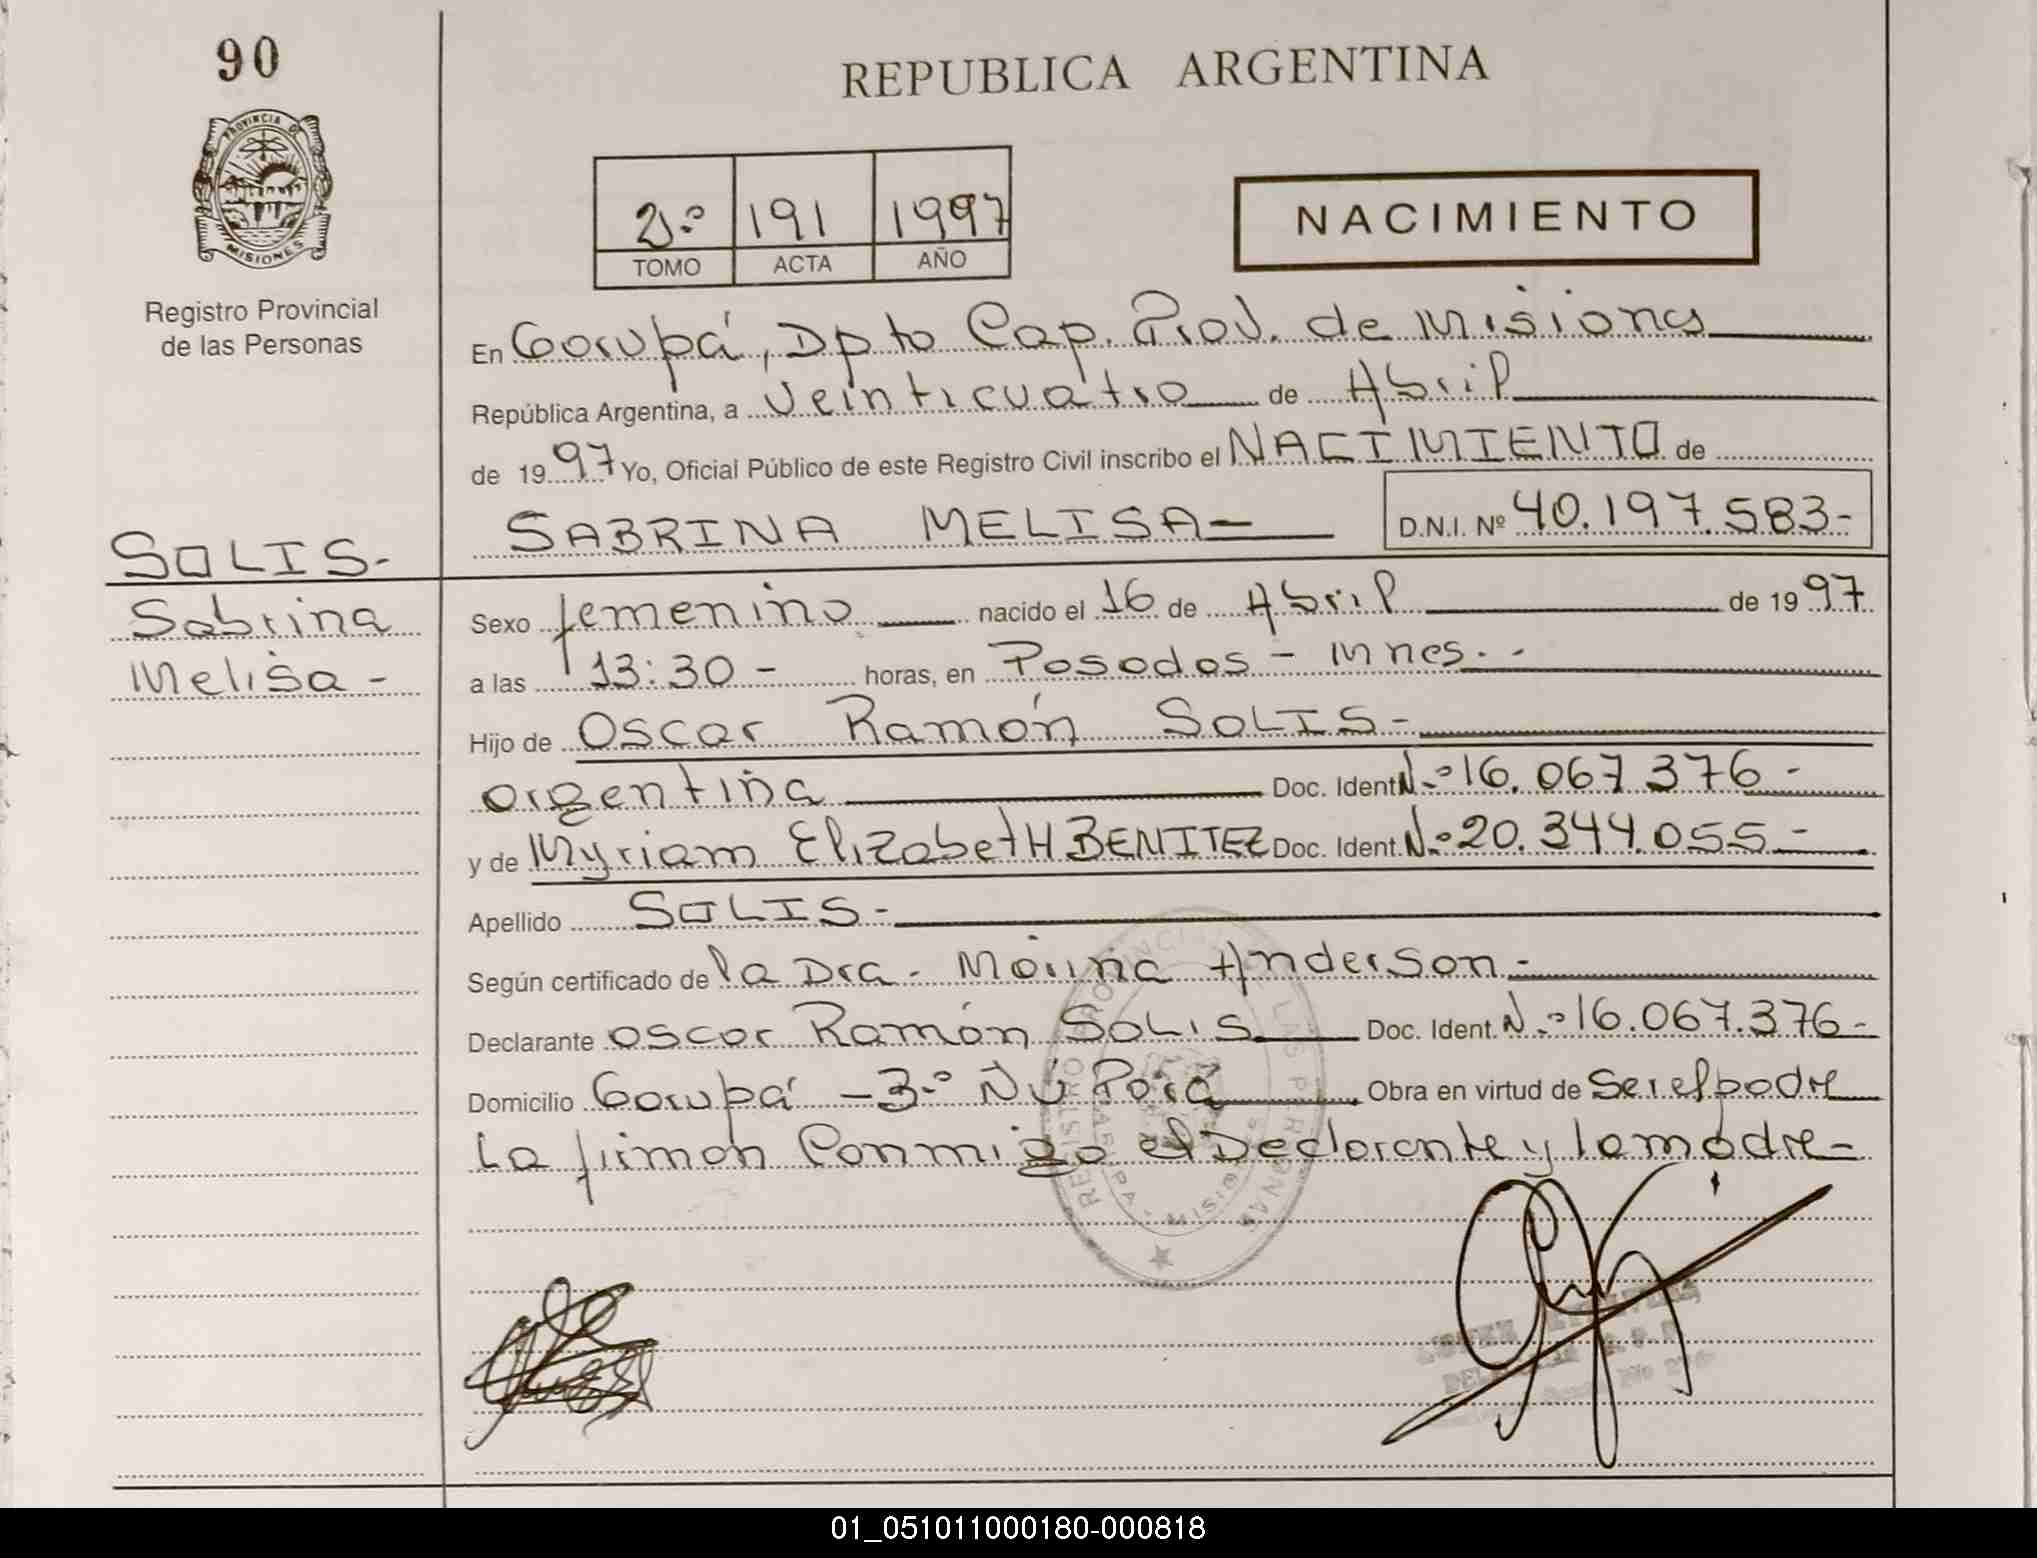 90
REPUBLICA ARGENTINA
PROVINCIA DE
MISIONES
Registro Provincial
de las Personas
2º 191 1997
TOMO ACTA AÑO
NACIMIENTO
En Garupá, Dpto Cap. Prov. de Misiones
República Argentina, a Veinticuatro de Abril
de 1997 Yo, Oficial Público de este Registro Civil inscribo el NACIMIENTO de
SABRINA MELISA D.N.I. Nº 40.197.583-
SOLIS-
Sabrina
Melisa-
Sexo femenino nacido el 16 de Abril de 1997
a las 13:30 - horas, en Posadas - Mnes.-
Hijo de Oscar Ramón SOLIS-
argentina Doc. Ident. N.º 16.067.376-
y de Myriam ElizabetH BENITEZ Doc. Ident. N.º 20.344.055-
Apellido SOLIS-
Según certificado de la Dra. Anderson-
Declarante Oscar Ramón SOLIS Doc. Ident. N.º 16.067.376-
Domicilio Garupá - 3.º Ñú Porá Obra en virtud de Ser el padre
La firman Conmigo el Declarante y la madre-
REGISTRO PROVINCIAL LAS PERSONAS
MISIONES
01_051011000180-000818